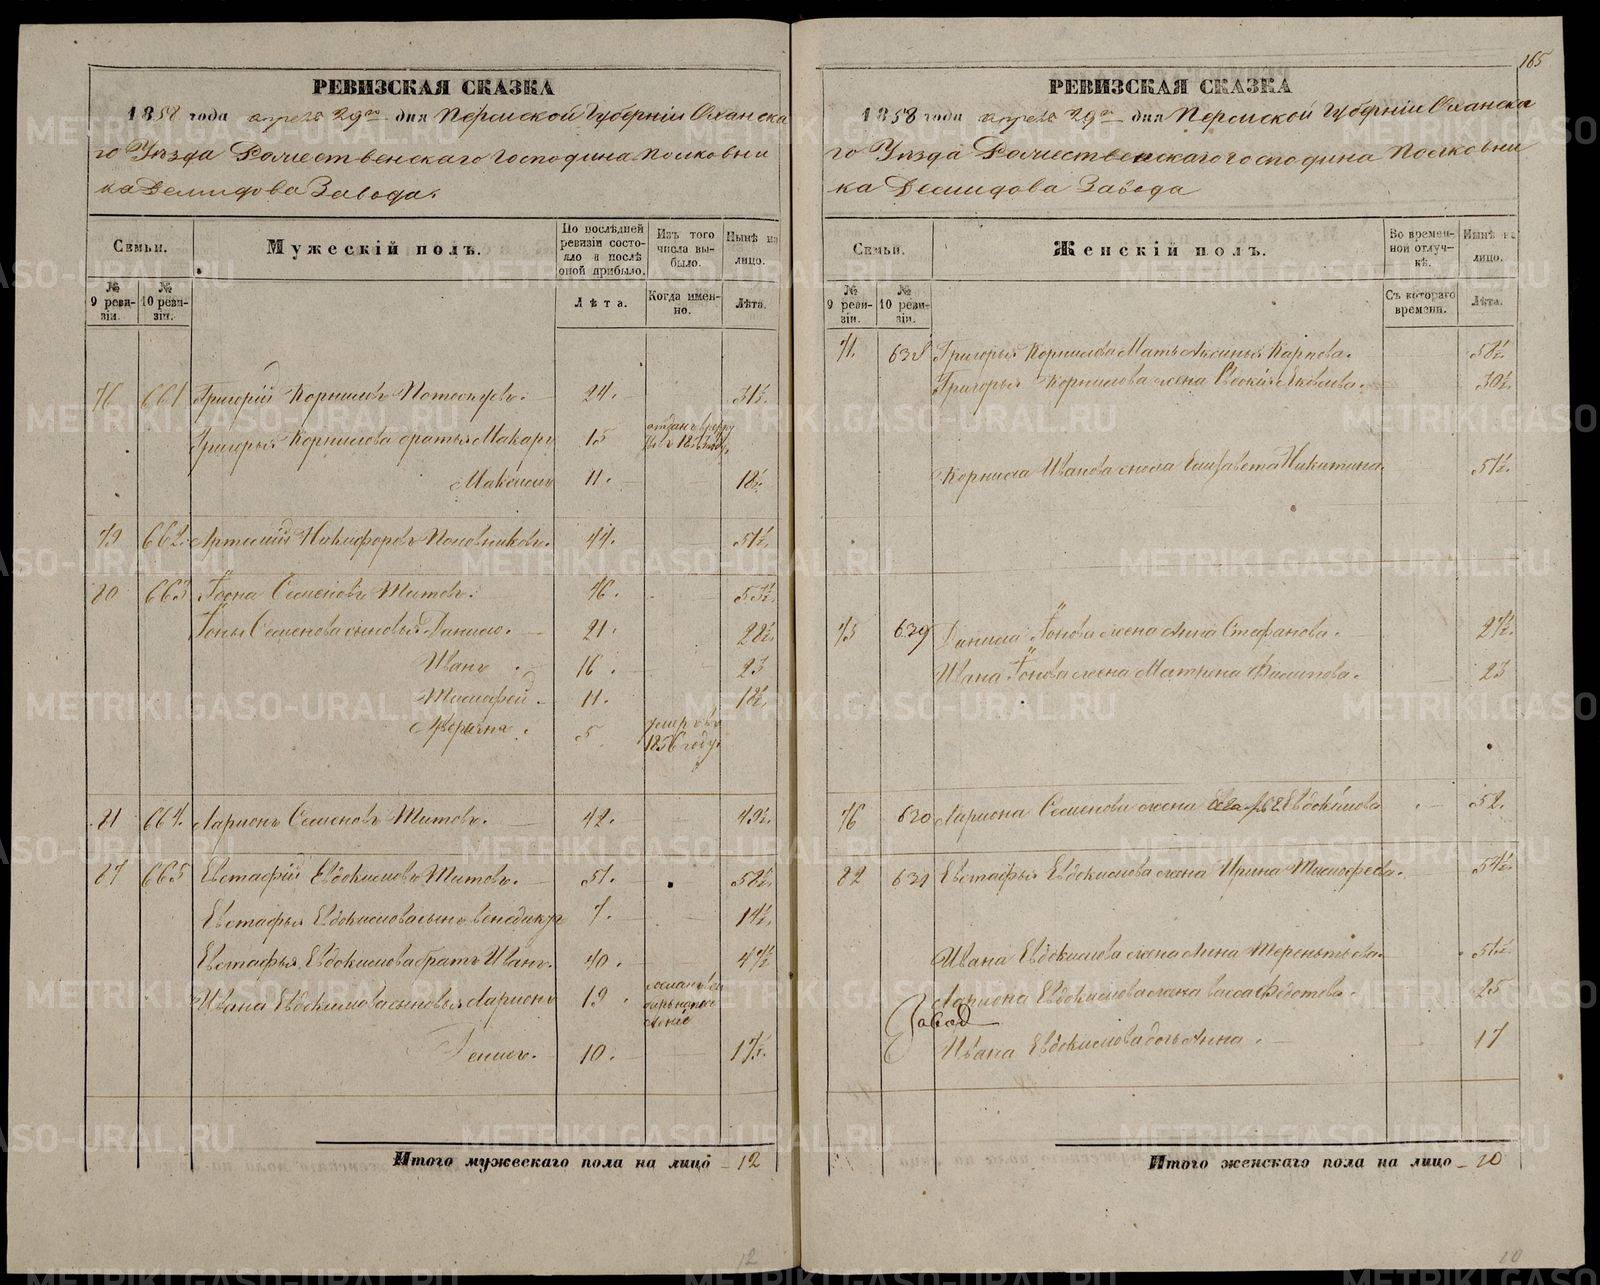 РЕВИЗСКАЯ СКАЗКА
1858 года апреля 29го дня Пермской Губерніи Оханска
го Уѣзда Рожественскаго Господина Полковни
ка Демидова Завода.
Семьи.
Мужескій полъ.
По послѣдней ревизіи состо-
яло и послѣ оной прибыло.
Изъ того числа вы-
было.
Нынѣ на лицо.
№ 9 реви-
зіи.
№ 10 реви-
зіи.
Лѣта.
Когда имен-
но.
Лѣта.
76 661 Григорій Корниловъ 24. 31½.
Григорья Корнилова братья Макаръ 15
Максимъ 11. 18½.
79 662. Артемій Никифоровъ Половниковъ. 44. 51½.
80 663 Іона Семеновъ Титовъ. 46. 53½.
Іоны Семенова сыновья Данило. 21. 28½.
Иванъ 16. 23
Тимофей. 11. 18½.
5 умеръ въ
1856 году
81 664. Ларионъ Семеновъ Титовъ. 42. 49½.
87 665 Евстафій Евдокимовъ Титовъ. 51. 58½.
Евстафья Евдокимова сынъ Венедиктъ 7. 14½.
Евстафья Евдокимова братъ Иванъ. 40. 47½
Ивана Евдокимова сыновья Ларионъ 19.
10. 17½.
Итого мужескаго пола на лицо 12
12
165
РЕВИЗСКАЯ СКАЗКА
1858 года апреля 29го дня Пермской Губерніи Оханска
го Уѣзда Рожественскаго Господина Полковни
ка Демидова Завода
Семьи.
Женскій полъ.
Во времен-
ной отлуч-
кѣ.
Нынѣ на лицо.
№ 9 реви-
зіи.
№ 10 реви-
зіи.
Съ котораго времени.
Лѣта.
71. 628 Григорья Корнилова Мать Аксинья Карпова. 58½.
Григорья Корнилова жена Яковлева. 30½.
Корнила Иванова сноха Елизавета Никитина. 51½.
75 629 Данила Іонова жена Анна Стафанова. 27½.
Ивана Іонова жена Матрена Филипова. 23
76 630 Лариона Семенова жена Евдокимова 52.
82 631 Евстафья Евдокимова жена Ирина Тимофеева. 54½.
Ивана Евдокимова жена Анна Терентьева. 51½.
Лариона Евдокимова жена Васса Федотова. 25
Завод
Ивана Евдокимова дочь Анна. 17
Итого женскаго пола на лицо 10
10
METRIKI.GASO-URAL.RU